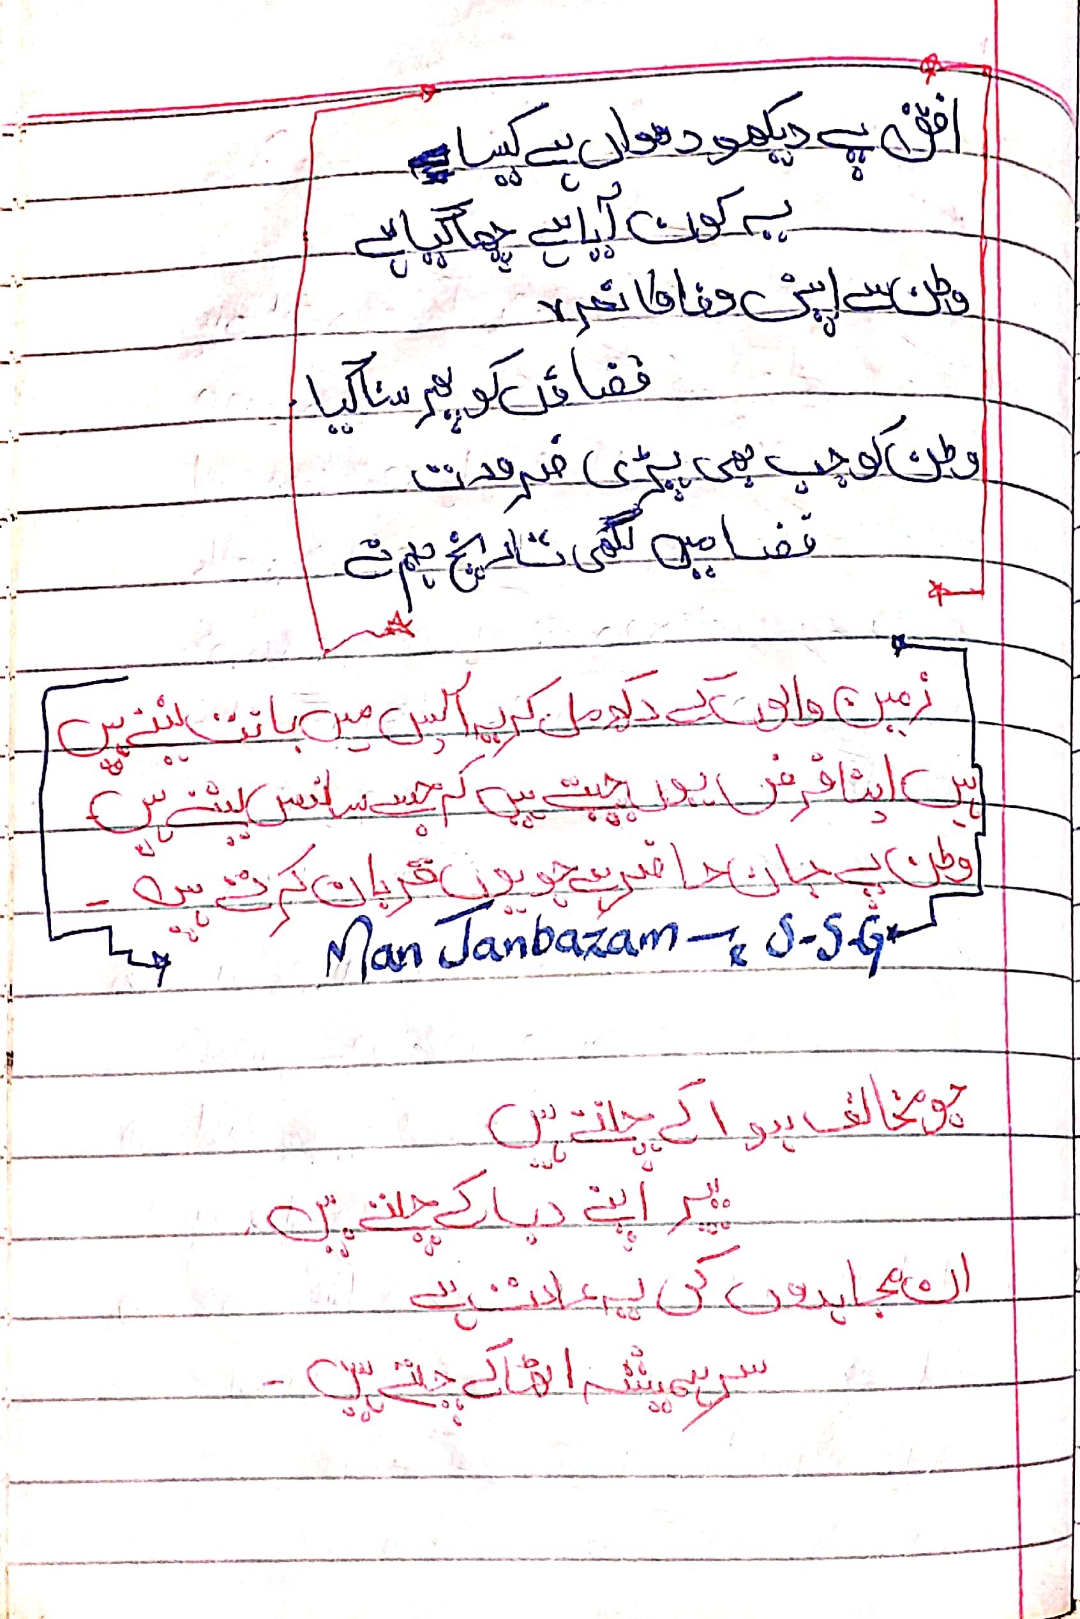 افق پے دیکھو دھواں ہے کیسا
یہ کون آیا ہے چھا گیا ہے
وطن سے اپنی وفا کا نعرہ
فضاؤں کو پھر سنا گیا
وطن کو جب بھی پڑی ضرورت
فضا میں لکھی تاریخ ہم نے
زمین والوں کے دکھ مل کر یہ آپس میں بانٹ لیتے ہیں
ہیں اپنا فرض یوں جیتے ہیں کہ جیسے سانس لیتے ہیں
وطن پے جان حاضر ہے جو یوں قربان کرتے ہیں -
Man Janbazam S-S-G
جو مخالف ہوا کے چلتے ہیں
پیر اپنے دبا کے چلتے ہیں
ان مجاہدوں کی یہ عادت ہے
سر ہمیشہ اٹھا کے چلتے ہیں -